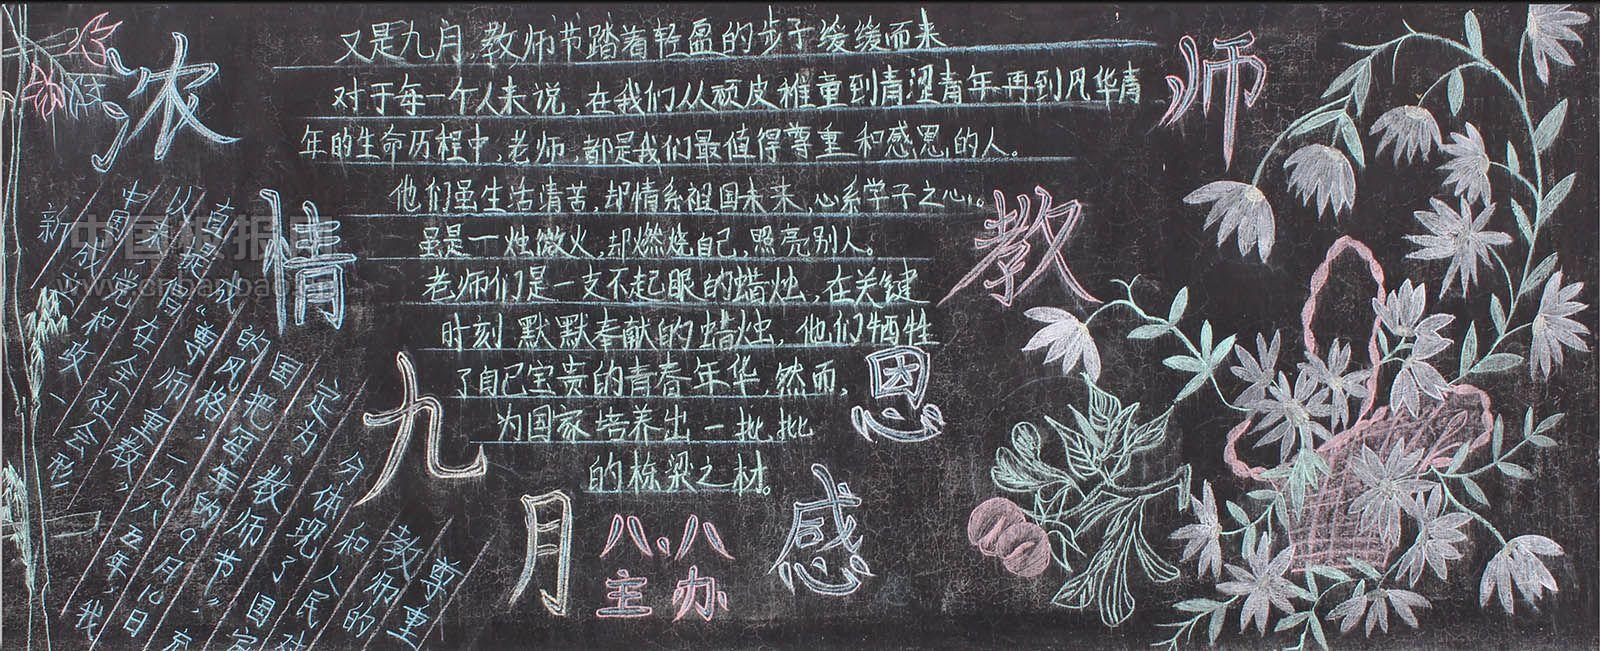 浓情九月
感恩教师
又是九月,教师节踏着轻盈的步子缓缓而来
对于每一个人来说,在我们从顽皮稚童到青涩青年再到风华青
年的生命历程中,老师,都是我们最值得尊重和感恩的人。
他们虽生活清苦,却情系祖国未来,心系学子之心。
虽是一烛微火,却燃烧自己,照亮别人。
老师们是一支不起眼的蜡烛,在关键
时刻默默奉献的蜡烛,他们牺牲
了自己宝贵的青春年华,然而,
为国家培养出一批批
的栋梁之材。
八、八
主办
新
中国成
在全社会形
的风格,一九八五年,我
国把每年的9月10日
定为“教师节”,充
分体现了国家
和人民对
教师的
尊重
中国板报网